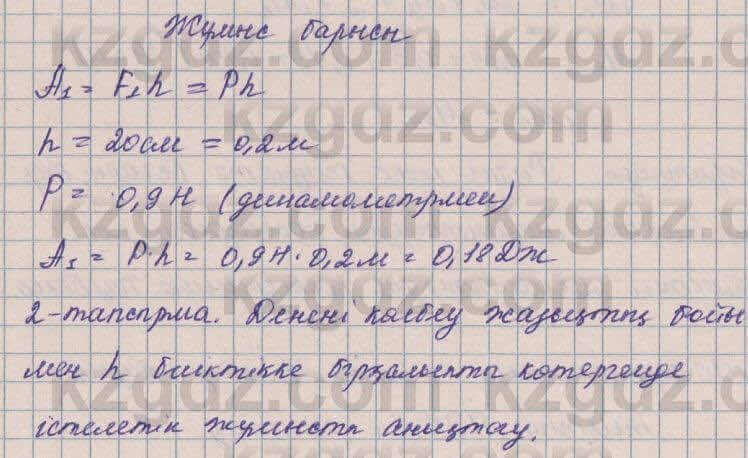 Жұмыс барысы
A₁ = F₁h = Ph
h = 20см = 0,2м
P = 0,9Н (динамометрмен)
A₁ = P·h = 0,9Н·0,2м = 0,18Дж
2-тапсырма. Денені көлбеу жазықтық бойы
мен h биіктікке бірқалыпты көтергенде
істелетін жұмысты анықтау.
kzgdz.com
kzgdz.com
kzgdz.com
kzgdz.com
kzgdz.com